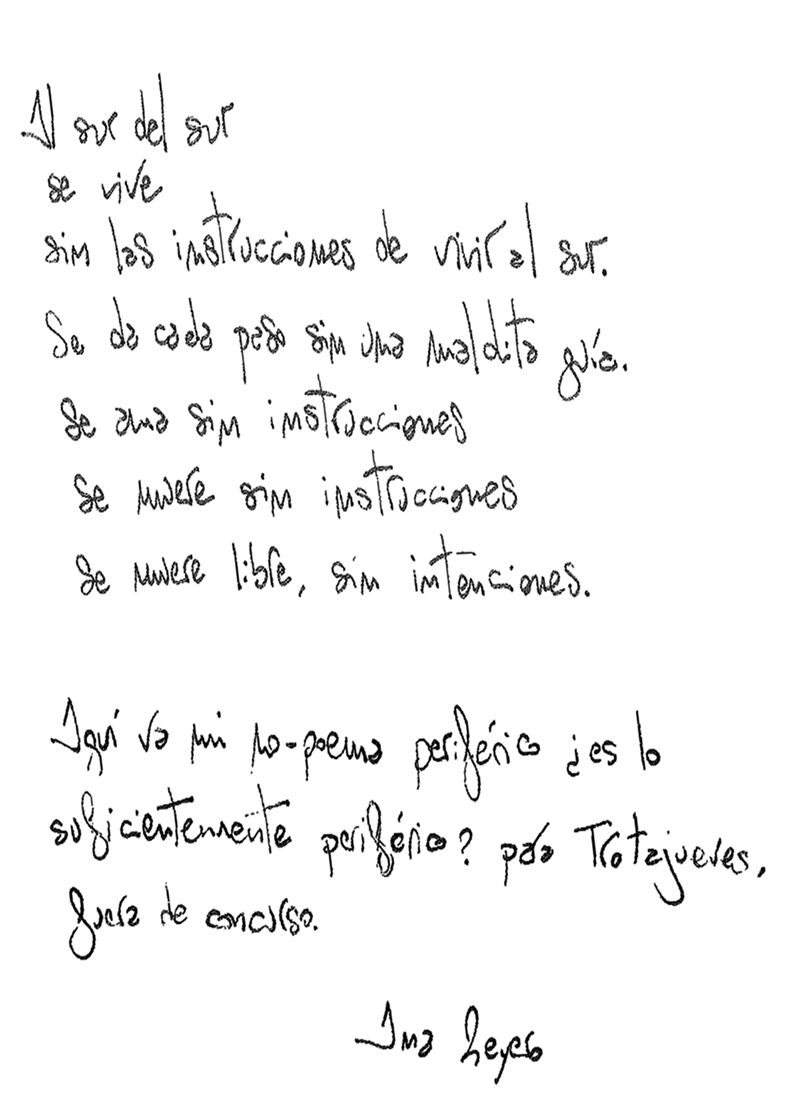 Al sur del sur
se vive
sin las instrucciones de vivir al sur.
Se da cada paso sin una maldita guía.
Se ama sin instrucciones
Se muere sin instrucciones
Se muere libre, sin intenciones.
Aquí va mi no-poema periférico ¿es lo
suficientemente periférico? para Trotajueves,
fuera de concurso.
Ana Reyes